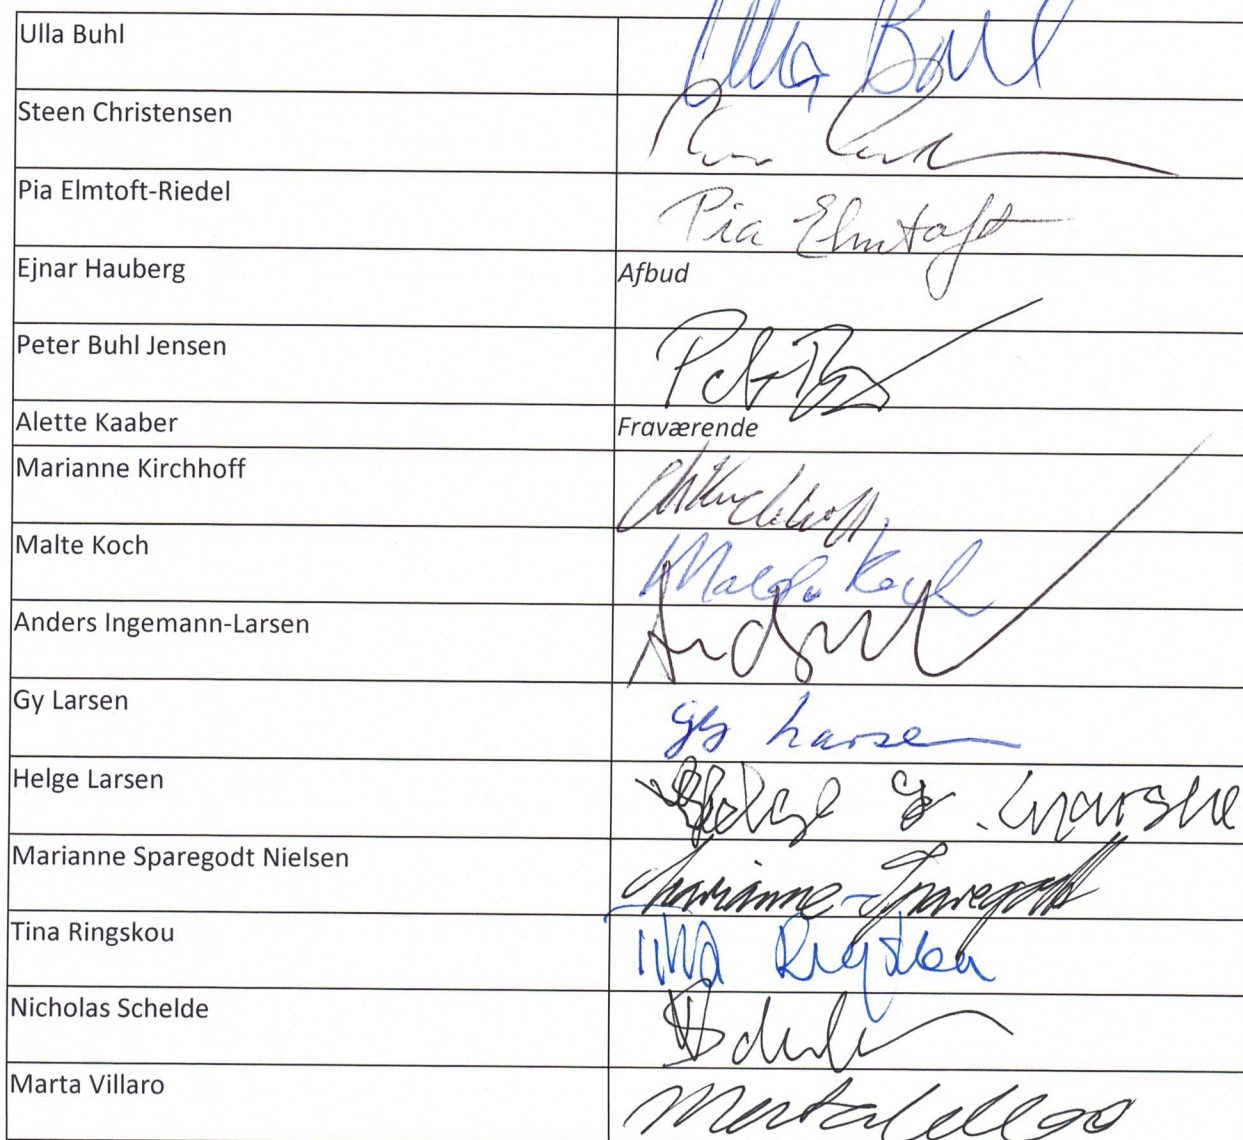 Ulla Buhl
Ulla Buhl
Steen Christensen
Pia Elmtoft-Riedel
Pia Elmtoft
Ejnar Hauberg
Afbud
Peter Buhl Jensen
Alette Kaaber
Fraværende
Marianne Kirchhoff
MKirchhoff
Malte Koch
Malte Koch
Anders Ingemann-Larsen
Gy Larsen
Gy Larsen
Helge Larsen
Marianne Sparegodt Nielsen
Marianne Sparegodt
Tina Ringskou
Tina Ringskou
Nicholas Schelde
Marta Villaro